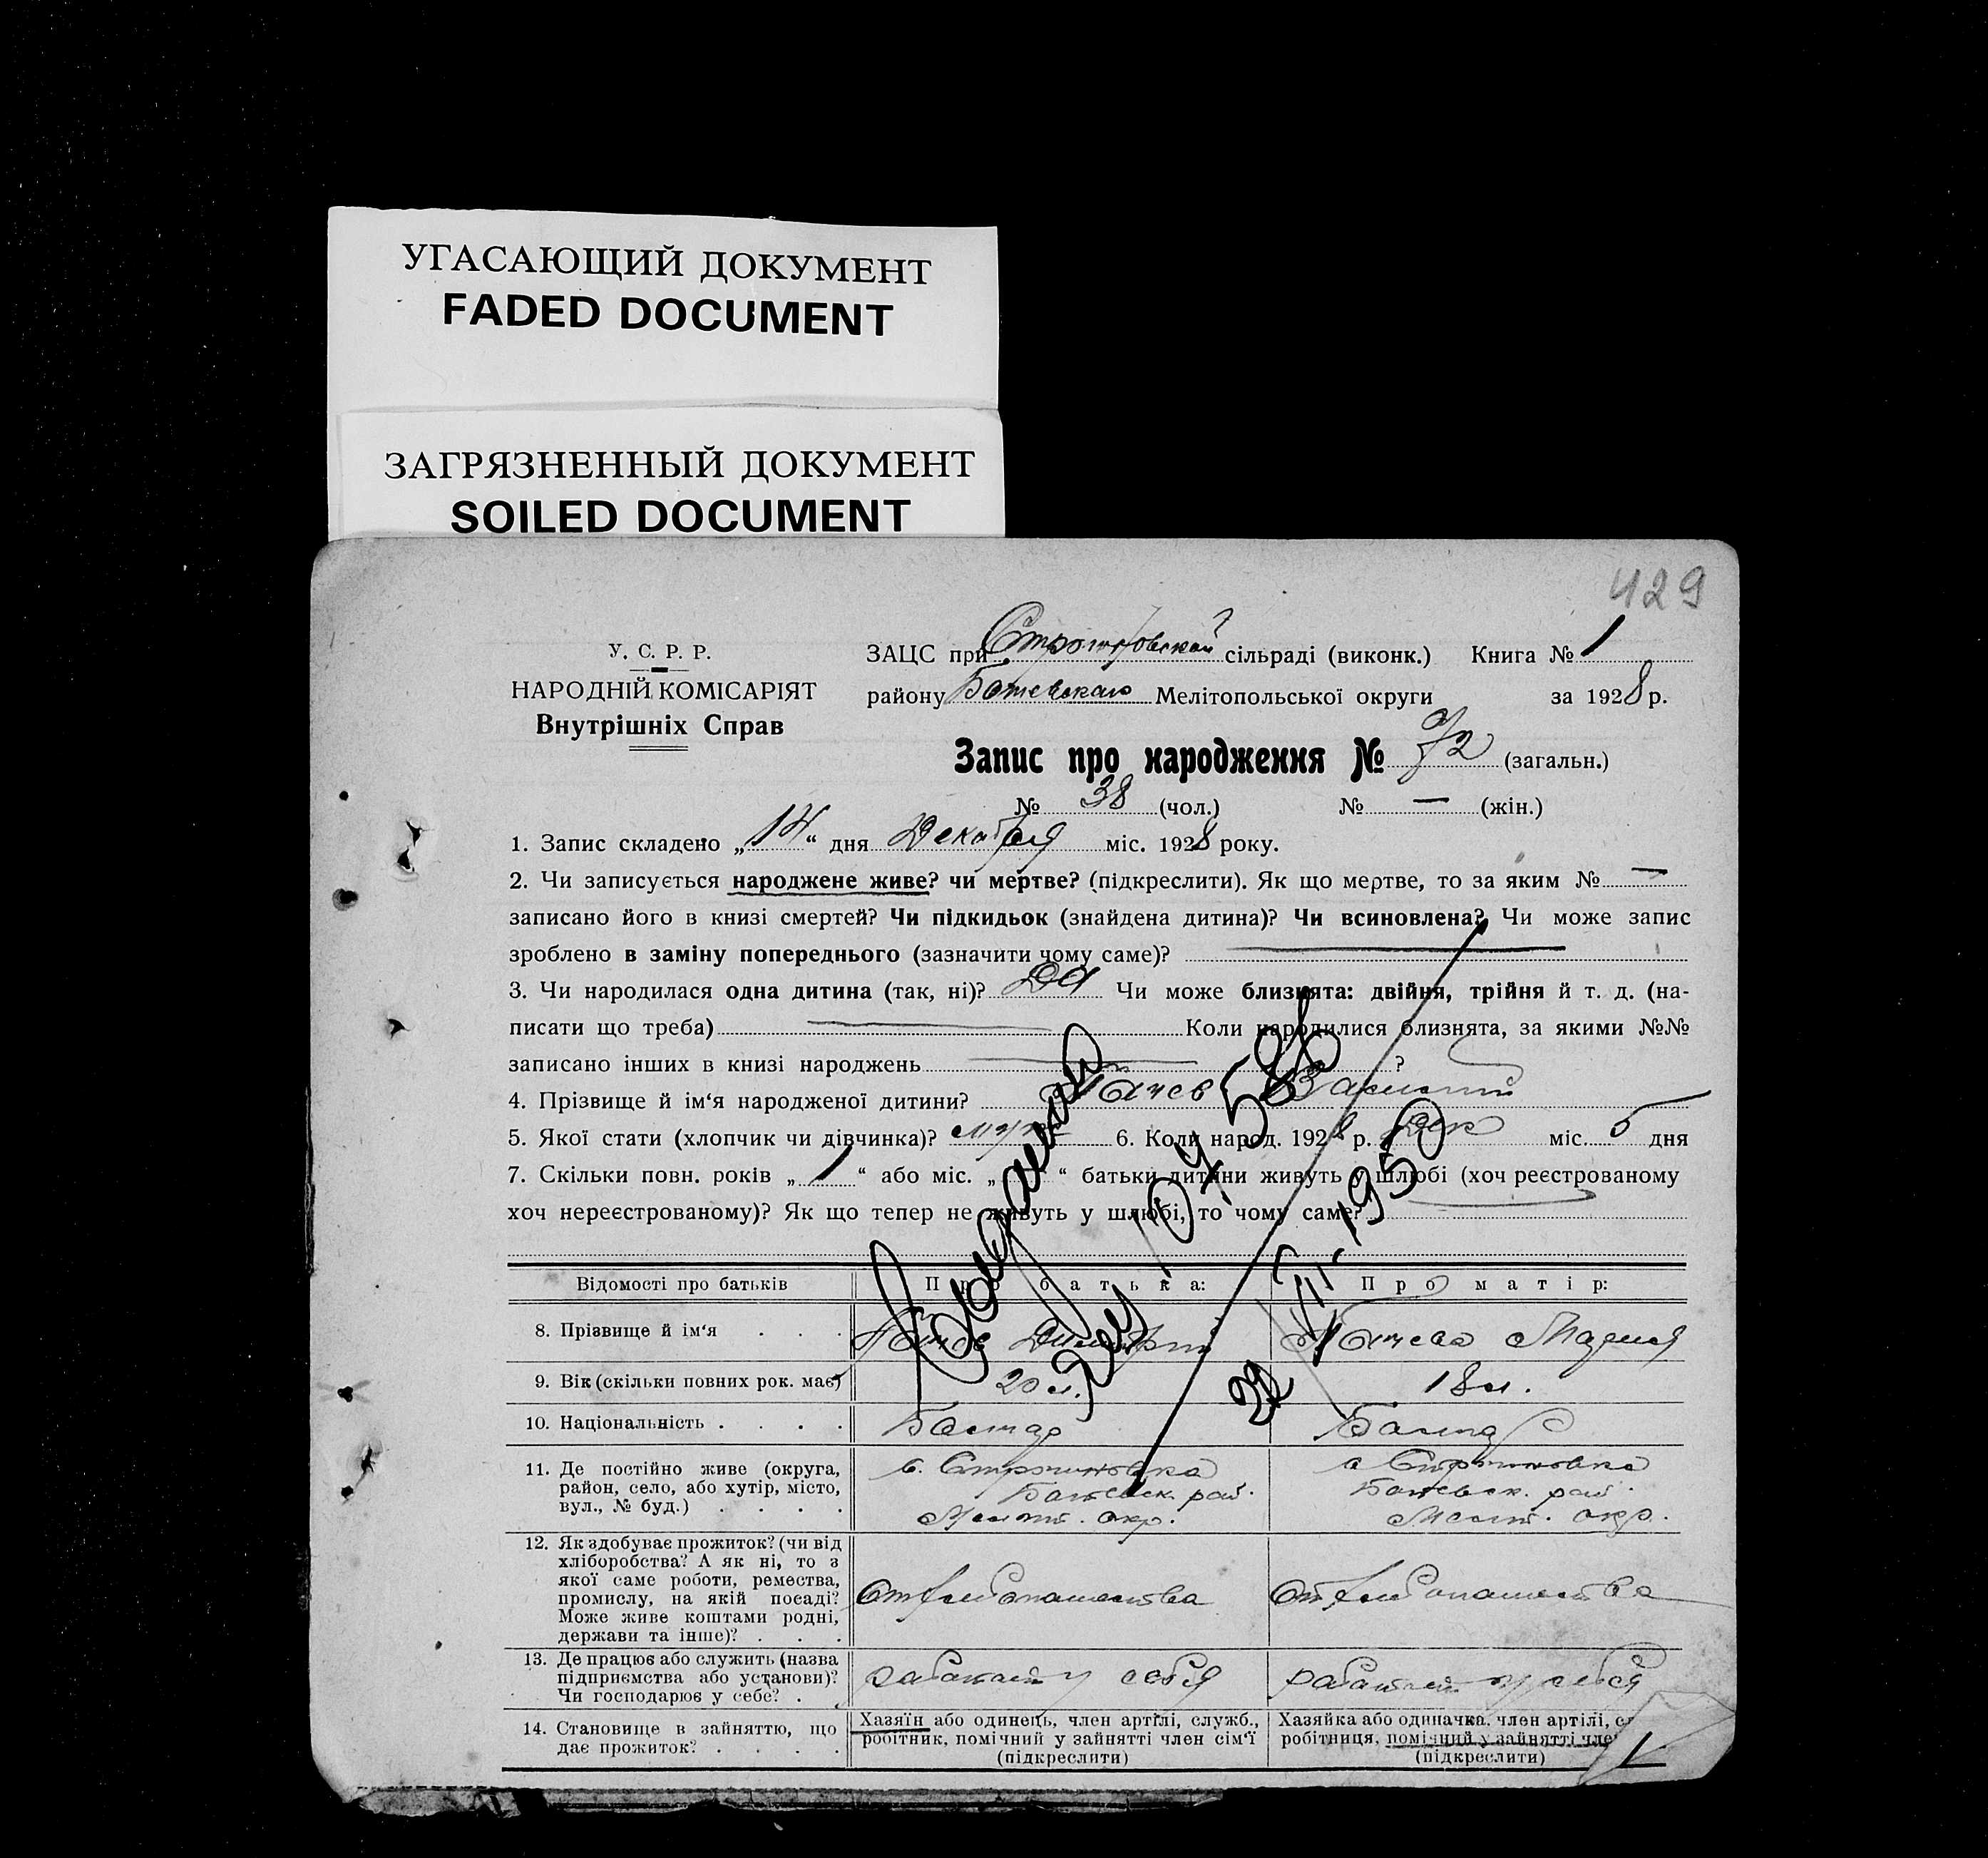 УГАСАЮЩИЙ ДОКУМЕНТ
FADED DOCUMENT
ЗАГРЯЗНЕННЫЙ ДОКУМЕНТ
SOILED DOCUMENT
429
У. С. Р. Р.
НАРОДНІЙ КОМІСАРІЯТ
Внутрішніх Справ
ЗАЦС при сільраді (виконк.) Книга № 1
району Ботевскаго Мелітопольської округи за 1928 р.
Запис про народження № 72 (загальн.)
№ 38 (чол.) № — (жін.)
1. Запис складено „14“ дня Декабря міс. 1928 року.
2. Чи записується народжене живе? чи мертве? (підкреслити). Як що мертве, то за яким № —
записано його в книзі смертей? Чи підкидьок (знайдена дитина)? Чи всиновлена? Чи може запис
зроблено в заміну попереднього (зазначити чому саме)?
3. Чи народилася одна дитина (так, ні)? Да Чи може близнята: двійня, трійня й т. д. (на-
писати що треба) Коли народилися близнята, за якими №№
записано інших в книзі народжень ?
4. Прізвище й ім'я народженої дитини? Василий
5. Якої стати (хлопчик чи дівчинка)? муж 6. Коли народ. 1928 р. Дек міс. 5 дня
7. Скільки повн. років „1“ або міс. „ “ батьки дитини живуть у шлюбі (хоч реєстрованому
хоч нереєстрованому)? Як що тепер не живуть у шлюбі, то чому саме?
Відомості про батьків Про батька: Про матір:
8. Прізвище й ім'я . . . Димитрий Мария
9. Вік (скільки повних рок. має) 20 л. 18 л.
10. Національність . . . . Болгар Болгар
11. Де постійно живе (округа,
район, село, або хутір, місто,
вул., № буд.) . . . .
с. Строгановка
Ботевск. рай.
Мелит. окр.
с Строгановка
Ботевск. рай.
Мелит. окр.
12. Як здобуває прожиток? (чи від
хліборобства? А як ні, то з
якої саме роботи, ремества,
промислу, на якій посаді?
Може живе коштами родні,
держави та інше)? . . .
От хлебопашества
От хлебопашества
13. Де працює або служить (назва
підприємства або установи)?
Чи господарює у себе? .
работает у себя
работает у себя
14. Становище в зайняттю, що
дає прожиток? . . . .
Хазяїн або одинець, член артілі, служб.,
робітник, помічний у зайнятті член сім'ї
(підкреслити)
Хазяйка або одиначка, член артілі,
робітниця, помічний у зайнятті
(підкреслити)